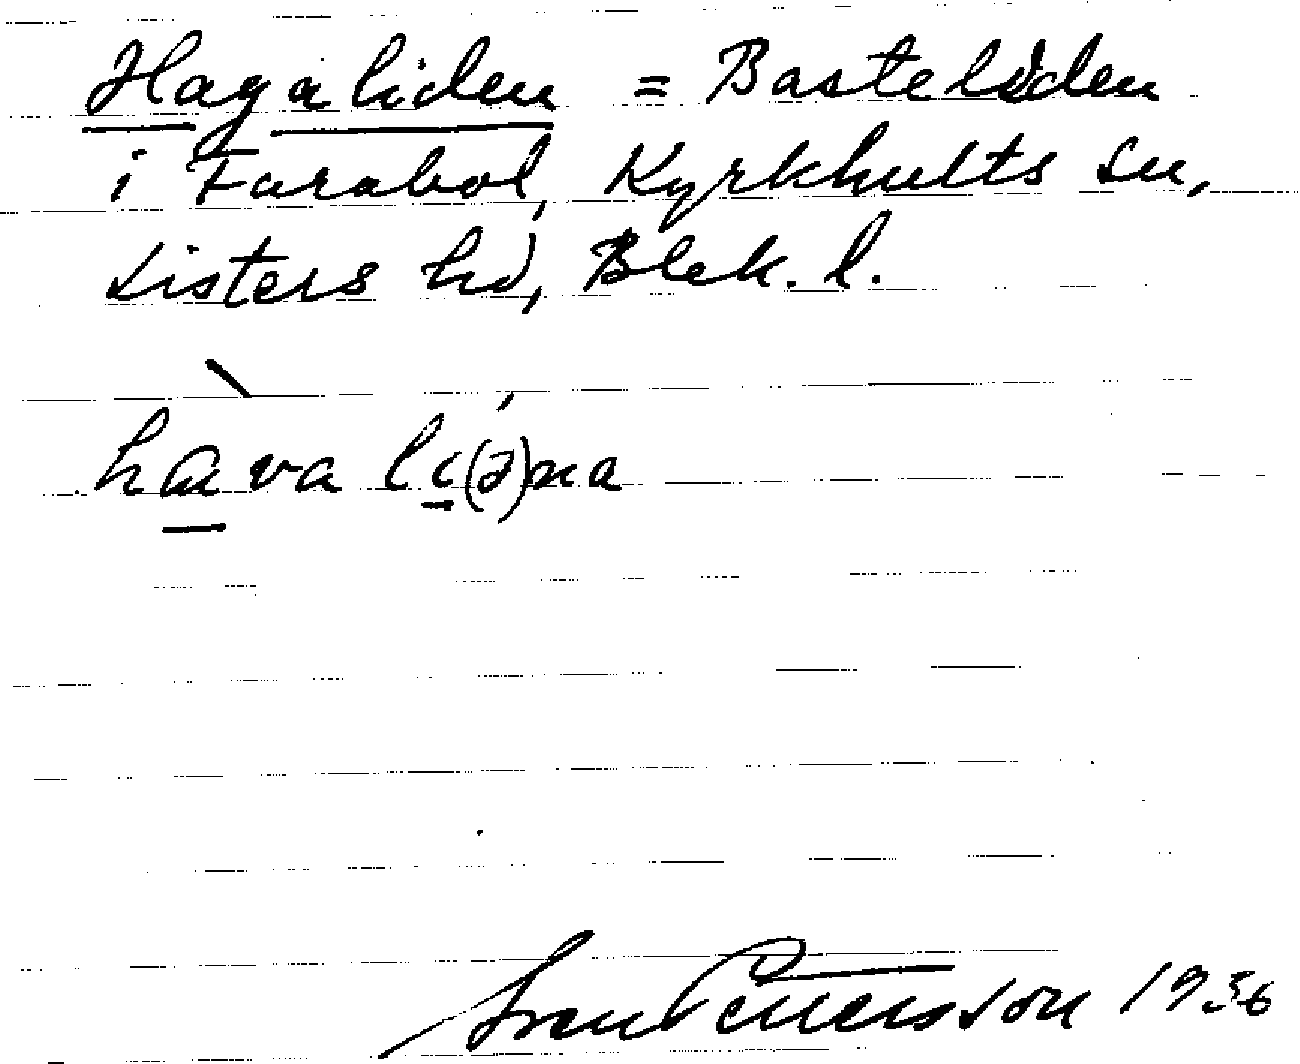 Hagaliden = Basteliden
i Farabol, Kyrkhults sn,
Listers hd, Blek. l.
hava li(ə)na
Sven Pettersson 1936